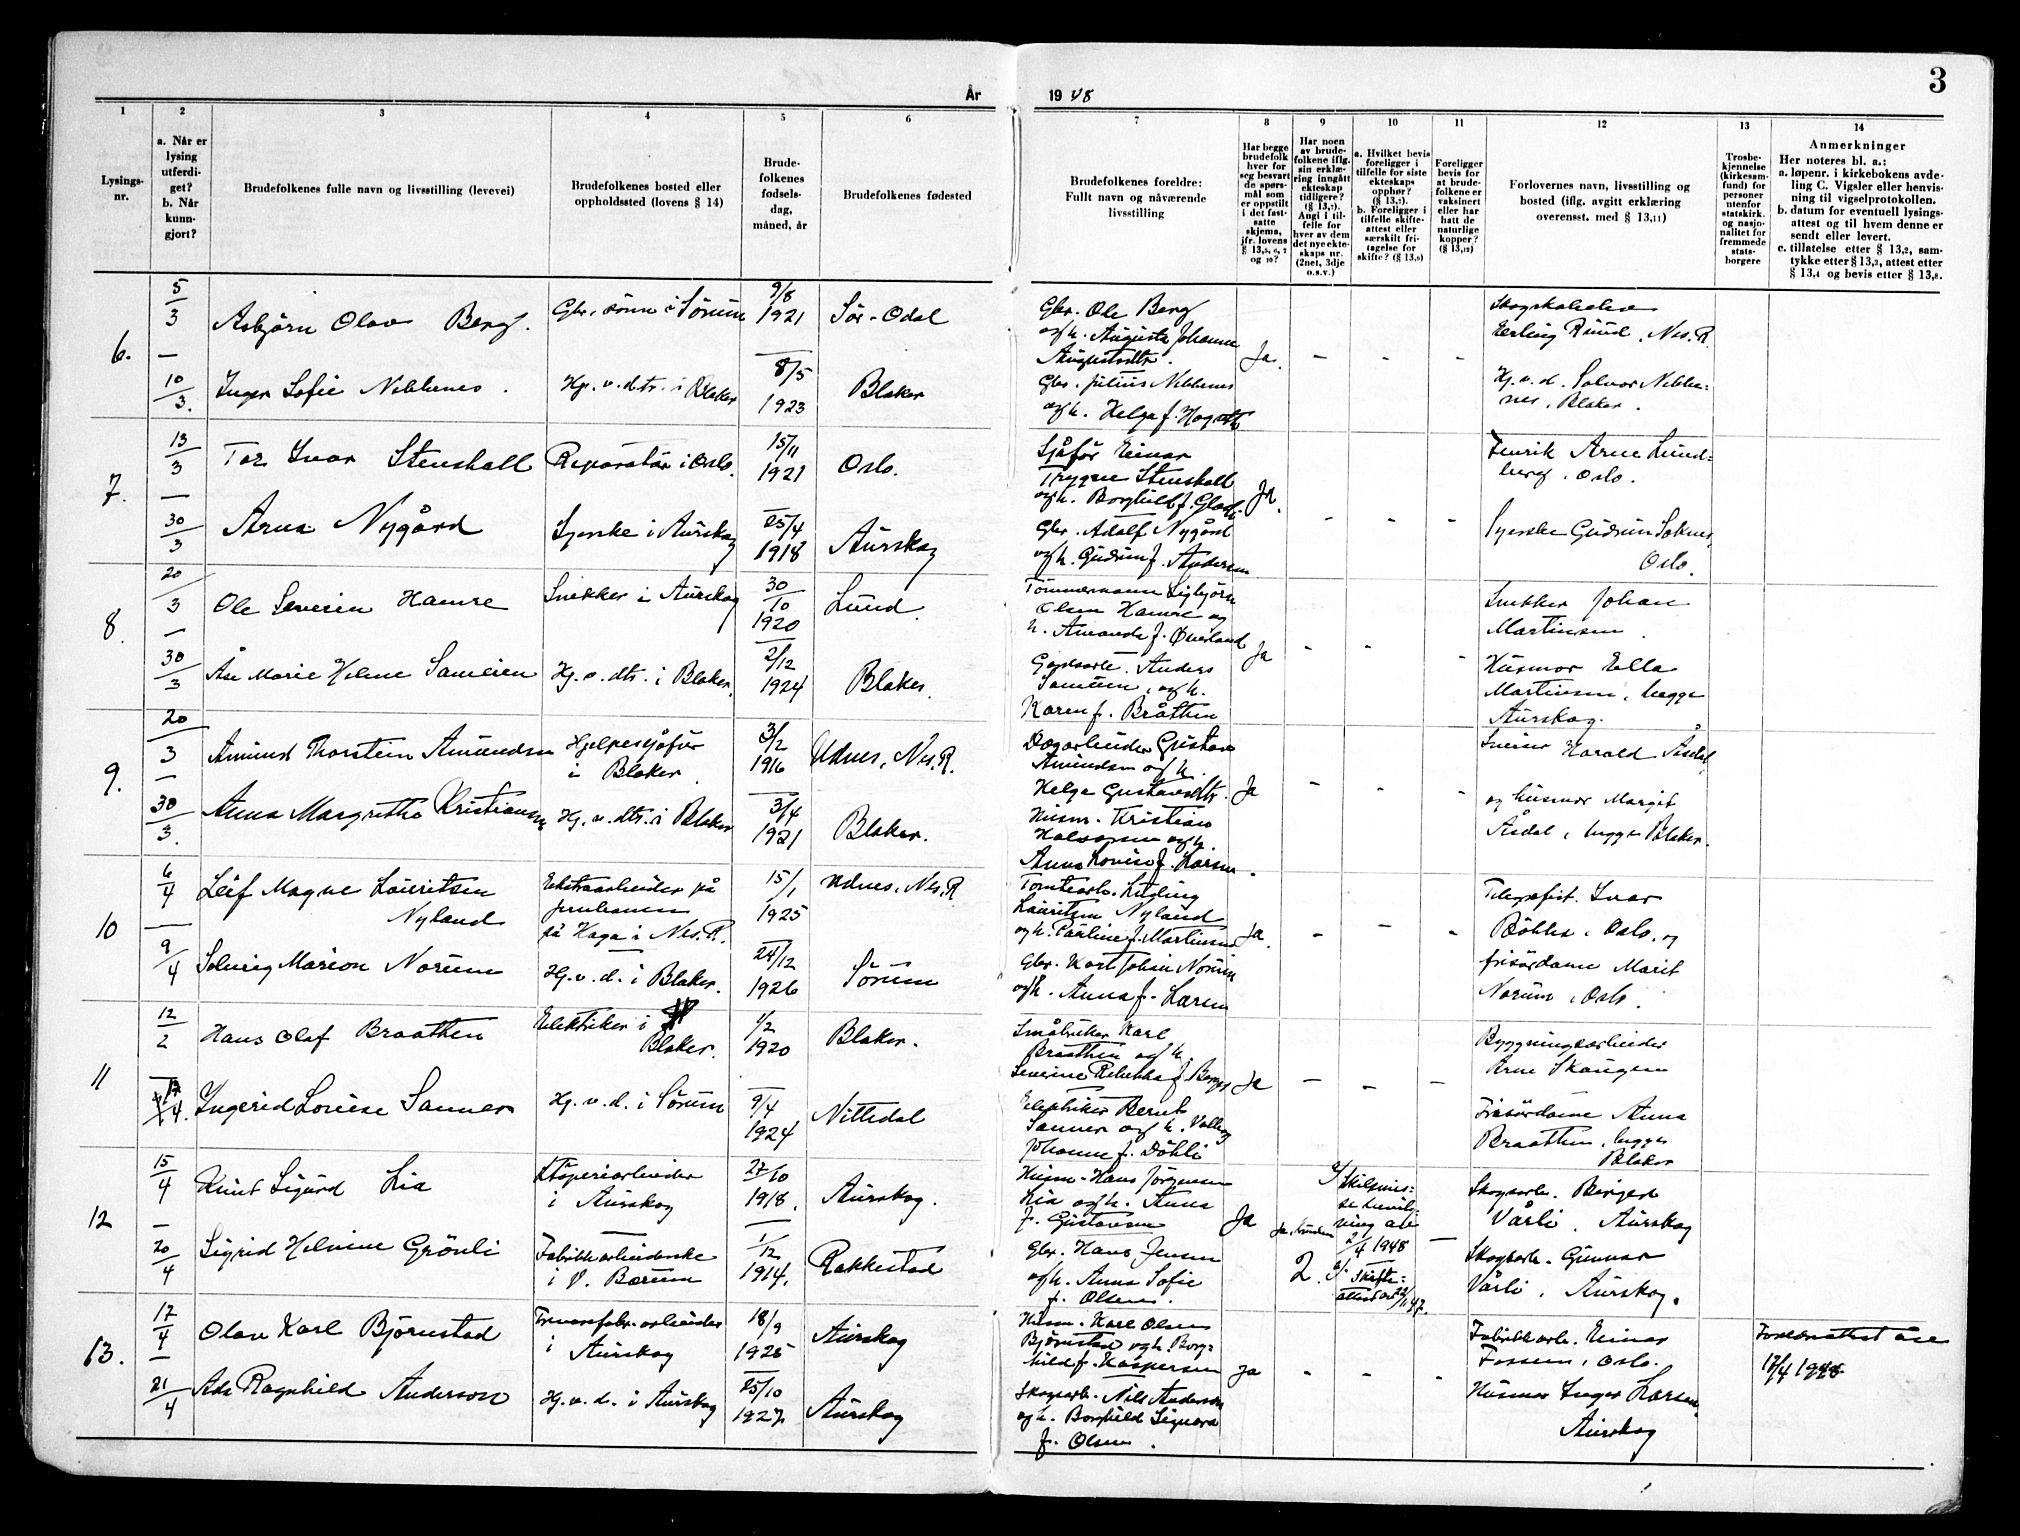 3
År 1948
1
2
3
4
5
6
7
8
9
10
11
12
13
14
Lysings-
nr.
a. Når er
lysing
utferdi-
get?
b. Når
kunn-
gjort?
Brudefolkenes fulle navn og livsstilling (levevei)
Brudefolkenes bosted eller
oppholdssted (lovens § 14)
Brude-
folkenes
fødsels-
dag,
måned, år
Brudefolkenes fødested
Brudefolkenes foreldre:
Fullt navn og nåværende
livsstilling
Har begge
brudefolk
hver for
seg besvart
de spørs-
mål som
er oppstilt
i det fast-
satte
skjema,
jfr. lovens
§ 13,5, 6, 7
og 10?
Har noen
av brude-
folkene iflg.
sin erklæ-
ring inngått
ekteskap
tidligere?
(§ 13,7).
Angi i til-
felle for
hver av dem
det nye ekte-
skaps nr.
(2net, 3dje
o.s.v.)
a. Hvilket bevis
foreligger i
tilfelle for siste
ekteskaps
opphør?
(§ 13,7).
b. Foreligger i
tilfelle skifte-
attest eller
særskilt fri-
tagelse for
skifte? (§ 13,9)
Foreligger
bevis for
at brude-
folkene er
vaksinert
eller har
hatt de
naturlige
kopper?
(§ 13,12)
Forlovernes navn, livsstilling og
bosted (iflg. avgitt erklæring
overensst. med § 13,11)
Trosbe-
kjennelse
(kirkesam-
fund) for
personer
utenfor
statskirk.
og nasjo-
nalitet for
fremmede
stats-
borgere
Anmerkninger
Her noteres bl. a.:
a. løpenr. i kirkebokens avde-
ling C. Vigsler eller henvis-
ning til vigselprotokollen.
b. datum for eventuell lysings-
attest og til hvem denne er
sendt eller levert.
c. tillatelse etter § 13,2, sam-
tykke etter § 13,3, attest etter
§ 13,4 og bevis etter § 13,8.
6.
5/3 – 10/3.
Asbjörn Olav Berg.
Gbr. sönn i Sörum
9/8 1921
Sör-Odal
Gbr. Ole Berg
og h. Augusta Johanne
Augustsdtr.
Ja. – – –
Erling Ruud, Nes. R.
Inger Sofie Nebbenes.
Hj. v. dtr. i Blaker
8/5 1923
Blaker
Gbr. Julius Nebbenes
og h. Helga f.
Hj. v. d. Solvor Nebbe=
nes, Blaker.
7.
13/3 – 30/3
Tor Ivar Stenshall
Reparatör i Oslo.
15/11 1921
Oslo.
Sjåför Einar
Trygve Stenshall
og h. Borghild f.
Ja. – – –
Henrik Arne Lund=
berg, Oslo.
Arna Nygård
Syerske i Aurskog
25/4 1918
Aurskog
Gbr. Adolf Nygård
og h. Gudrun f. Andersen
Syerske Gudrun
Oslo.
8.
20/3 – 30/3
Ole Severin Hamre
Snekker i Aurskog
30/10 1920
Lund.
Tömmermann Sigbjörn
Olsen Hamre og
h. Amanda f. Överland
Ja – – –
Snekker Johan
Martinsen.
Åse Marie Helene Sameien
Hj. v. dtr. i Blaker.
2/12 1924
Blaker.
Gårdsarb. Anders
Sameien, og h.
Karen f. Bråthen
Husmor Ella
Martinsen, begge
Aurskog.
9.
20/3 – 30/3.
Amund Thorstein Amundsen
Hjelpesjåför
i Blaker.
3/2 1916
Udnes, Nes. R.
Dagarbeider Gustav
Amundsen og h.
Helga Gustavsdtr.
Ja – – –
Harald Åsdal,
Anna Margrethe Kristiansen
Hj. v. dtr. i Blaker
3/4 1921
Blaker.
Husm. Kristian
Halvorsen og h.
Anna Lovise f. Larsen.
og husmor Margit
Åsdal, begge Blaker.
10
6/4 – 9/4
Leif Magne Lauritsen
Nyland
Ekstraarbeider på
jernbanen
på Haga i Nes. R.
15/1 1925
Udnes. Nes. R
Tomtearb. Erling
Lauritsen Nyland
og h. Pauline f. Martinsen
Ja. – – –
Telegrafist. Ivar
Oslo. og
Solveig Marion Norum
Hj. v. d. i Blaker.
24/12 1926
Sörum
Gbr. Karl Johan Norum
og h. Anna f. Larsen
frisördame Marit
Norum, Oslo.
11
12/2 – 17/4.
Hans Olaf Braathen
Elektriker i
Blaker.
1/2 1920
Blaker.
Småbruker Karl
Braathen og h.
Severine Rebekka f. Berger
Ja – – –
Byggningsarbeider
Arne Skaugen
Ingerid Louise Sanner
Hj. v. d. i Sörum
9/4 1924
Nittedal
Elektriker Bernt
Sanner og h. Valborg
Johanne f. Döhli
Frisördame Anna
Braathen, begge
Blaker
12
15/4 – 20/4
Knut Sigurd Lia
Støperiarbeider
i Aurskog
27/10 1918.
Aurskog.
Husm. Hans Jörgensen
Lia og h. Anna
f. Gustavsen
Ja
Ja, bruden
2.
a/ Skilsmis=
se bevilg=
ning av
2/4 1948
b/ Skifte=
attest av 22/11 47.
–
Skogsarb. Birger
Vårli, Aurskog
Sigrid Helvine Grönli
Fabrikkarbeiderske
i V. Bærum
1/12 1914.
Rakkestad
Gbr. Hans Jensen
og h. Anna Sofie
f. Olsen.
Skogsarb. Gunnar
Vårli, Aurskog.
13.
17/4 – 21/4
Olav Karl Björnstad
i Aurskog
18/9 1925
Aurskog
Husm. Karl Olsen
Björnstad og h. Borg=
hild f. Kaspersen
Ja – – –
Fabrikkarb. Einar
Fossum, Oslo.
17/4 1948
Ada Ragnhild Anderson
Hj. v. d. i Aurskog
25/10 1927.
Aurskog
Skogsarb. Nils Anderson
og h. Borghild Signora
f. Olsen.
Husmor Inger Larsen,
Aurskog